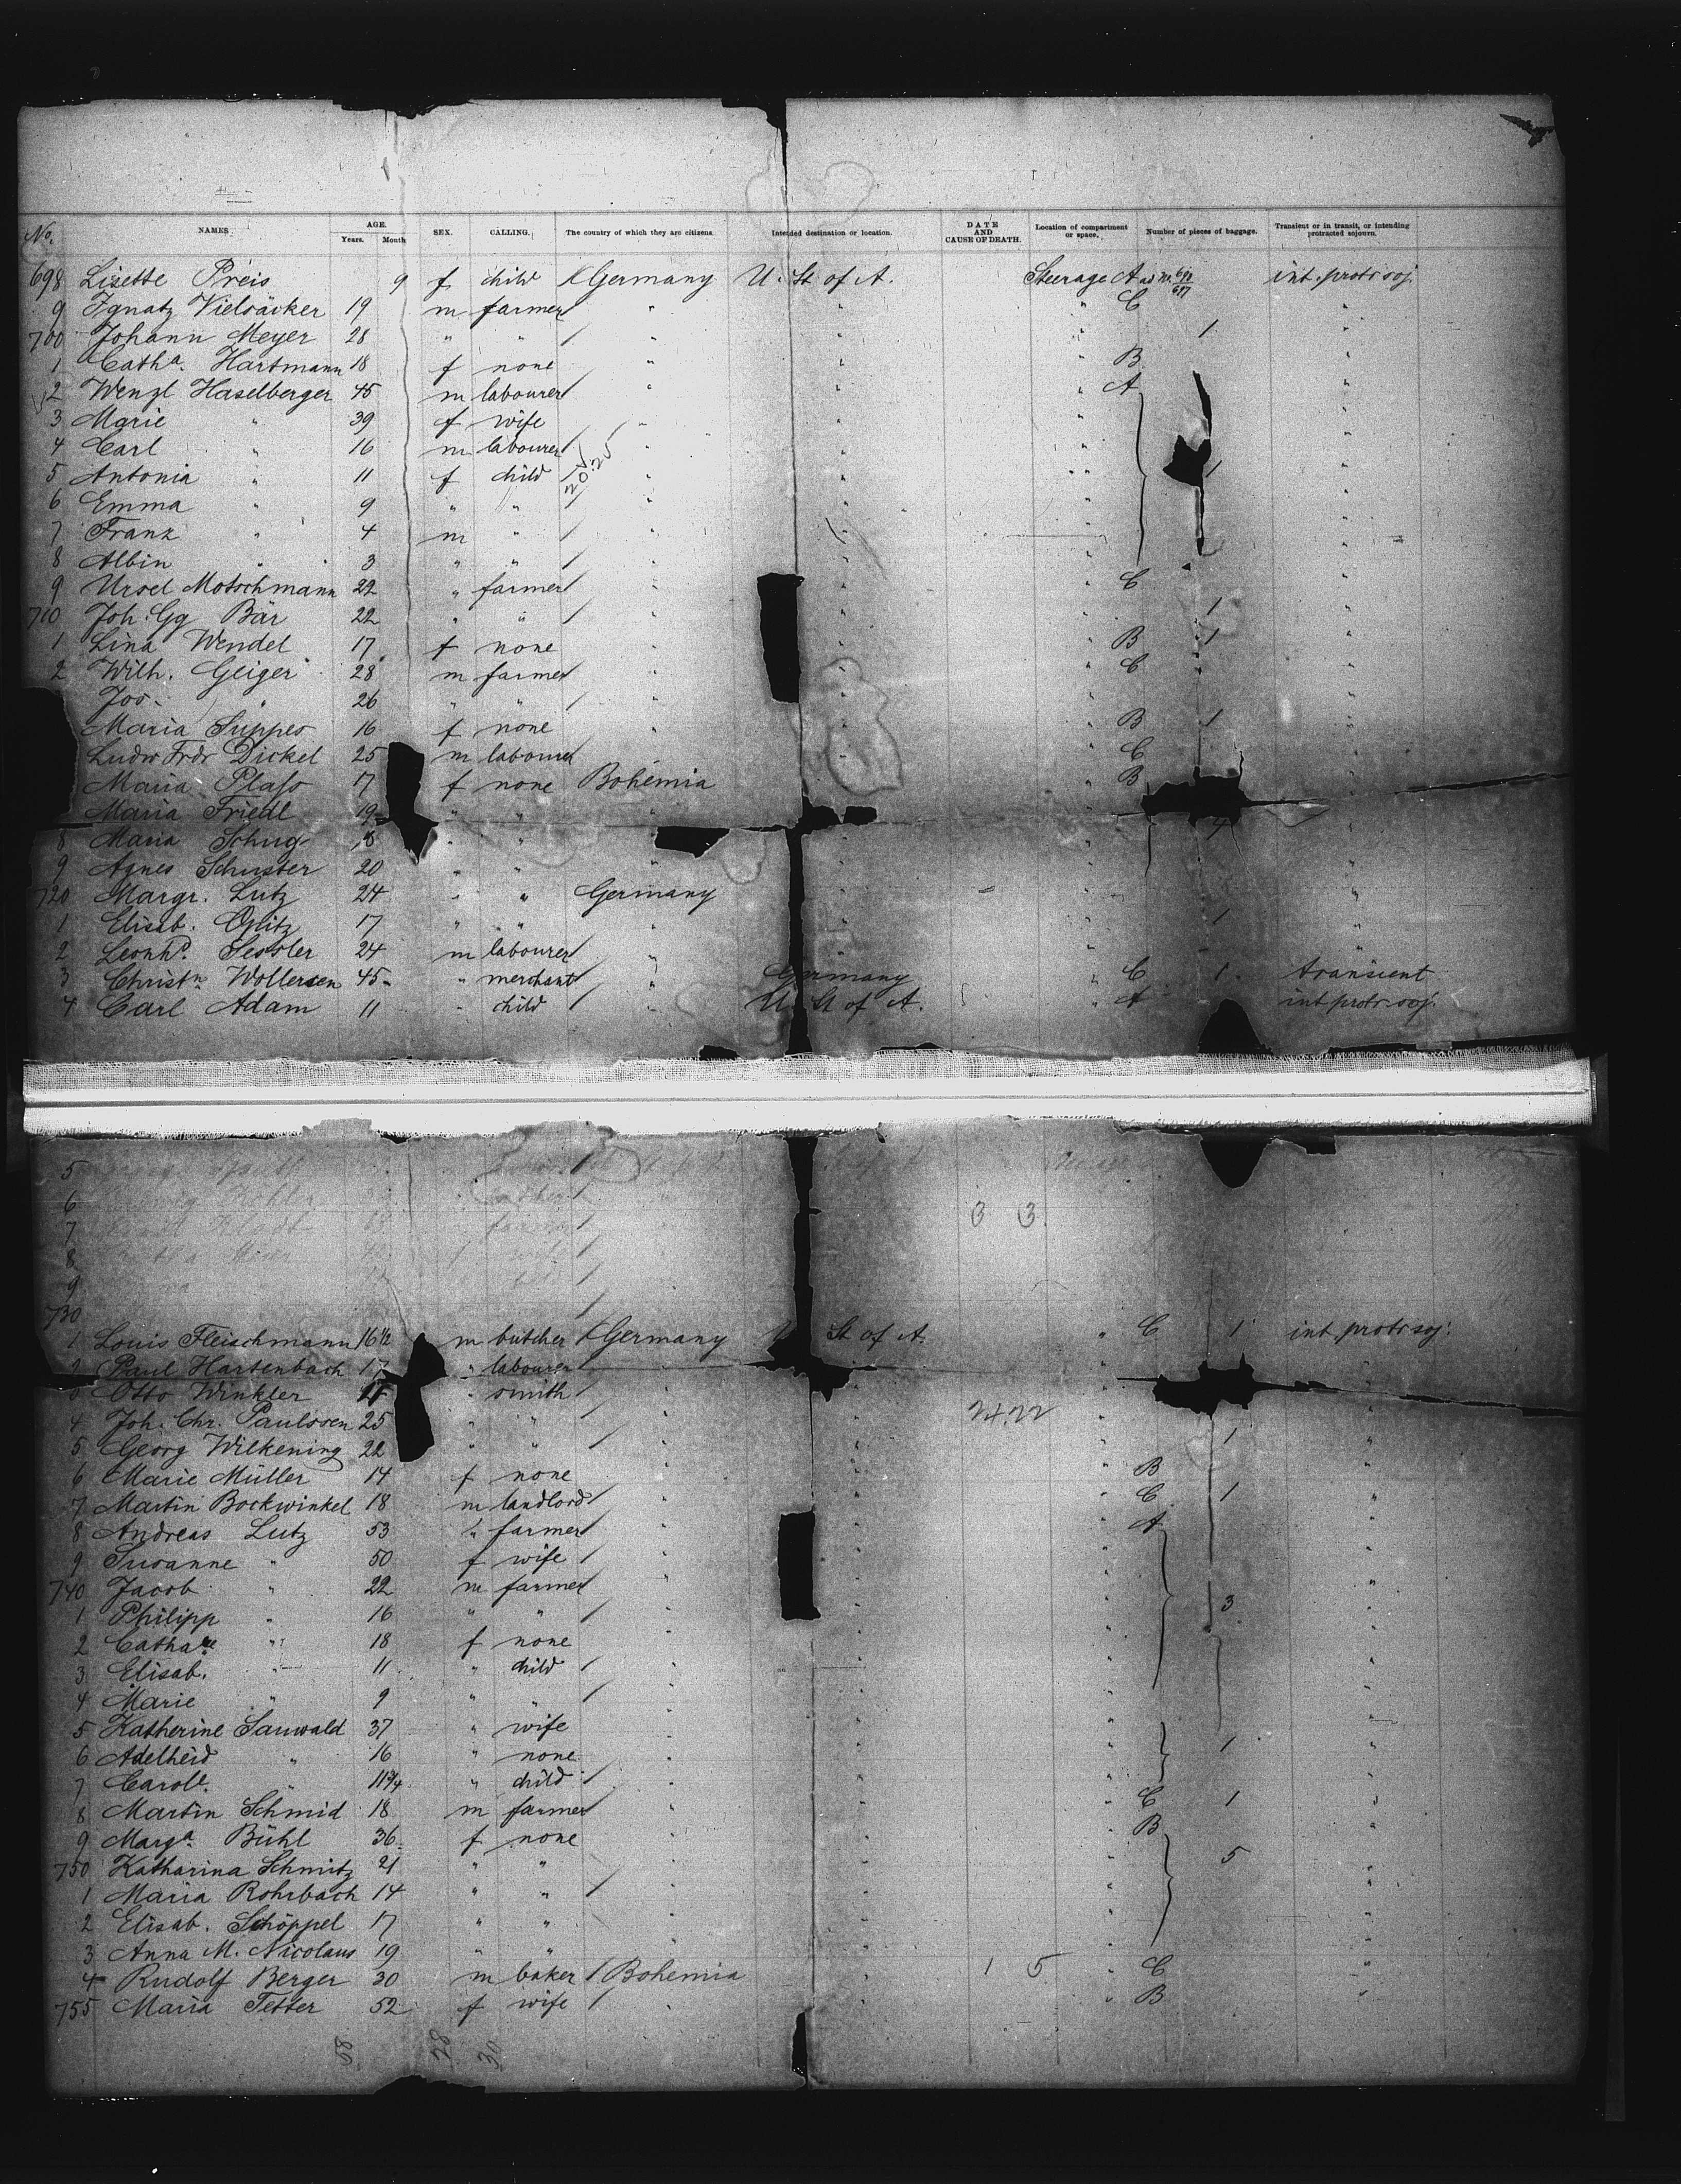 No. NAMES. AGE. Years. Month SEX. CALLING. The country of which they are citizens. Intended destination or location. DATE AND CAUSE OF DEATH. Location of compartment or space. Number of pieces of baggage. Transient or in transit, or intending protracted sojourn.
698 Lisette Preis 9 f child Germany U. St of A. Steerage A int. protr soj.
9 Ignatz 19 m farmer " " " C "
700 Johann Meyer 28 " " " " " 1 "
1 Cath.a Hartmann 18 f none " " " B "
2 Wenzl Haselberger 45 m labourer " " " A "
3 Marie " 39 f wife " " " "
4 Carl " 16 m labourer " " " "
5 Antonia " 11 f child " " " 1 "
6 Emma " 9 " " " " " "
7 Franz " 4 m " " " " "
8 Albin " 3 " " " " " "
9 Ursel Motschmann 22 " farmer " " " C "
710 Joh. Gg Bär 22 " " " " " 1 "
1 Lina Wendel 17 f none " " " B 1 "
2 Wilh. Geiger 28 m farmer " " " C "
Jos. " 26 " " " " " "
Maria Suppes 16 f none " " " B 1 "
Ludw Frdr Dickel 25 m labourer " " " C "
Maria 17 f none Bohemia " " B "
Maria Friedl 19 " " " " " "
8 Maria Schug " " " " " 4 "
9 Agnes Schuster 20 " " " " " "
720 Margr. Lutz 24 " " Germany " " "
1 Elisab. Opitz 17 " " " " " 1 "
2 Leonhd. Sessler 24 m labourer " " " "
3 Christn. Wollersen 45 " merchant " Germany " C 1 transient
4 Carl Adam 11 " child " U. St of A. " A int protr. soj.
5
6
7 3 3
8
9
730
1 Louis Fleischmann 16 1/2 m butcher Germany St of A. " C 1 int. protr soj.
2 Paul Hartenbach 17 " labourer " " " "
Otto Winkler " smith " " " "
4 Joh. Chr. Paulssen 25 " " " " 24.22 " "
5 Georg Wilkening 22 " " " " " 1 "
6 Marie Müller 14 f none " " " B "
7 Martin Bockwinkel 18 m landlord " " " C 1 "
8 Andreas Lutz 53 " farmer " " " A "
9 Susanne " 50 f wife " " " "
740 Jacob " 22 m farmer " " " "
1 Philipp " 16 " " " " " 3 "
2 Cathar " 18 f none " " " "
3 Elisab. " 11 " child " " " "
4 Marie " 9 " " " " " "
5 Katherine Sauwald 37 " wife " " " "
6 Adelheid " 16 " none " " " 1 "
7 Carole. " 11 3/4 " child " " " "
8 Martin Schmid 18 m farmer " " " C 1 "
9 Marga. Bühl 36 f none " " " B "
750 Katharina Schmitz 21 " " " " " 5 "
1 Maria Rohrbach 14 " " " " " "
2 Elisab. Schöppel 17 " " " " " "
3 Anna M. Nicolaus 19 " " " " " "
4 Rudolf Berger 30 m baker Bohemia " 1 5 " C "
755 Maria Tetter 52 f wife " " " B "
58 28 30